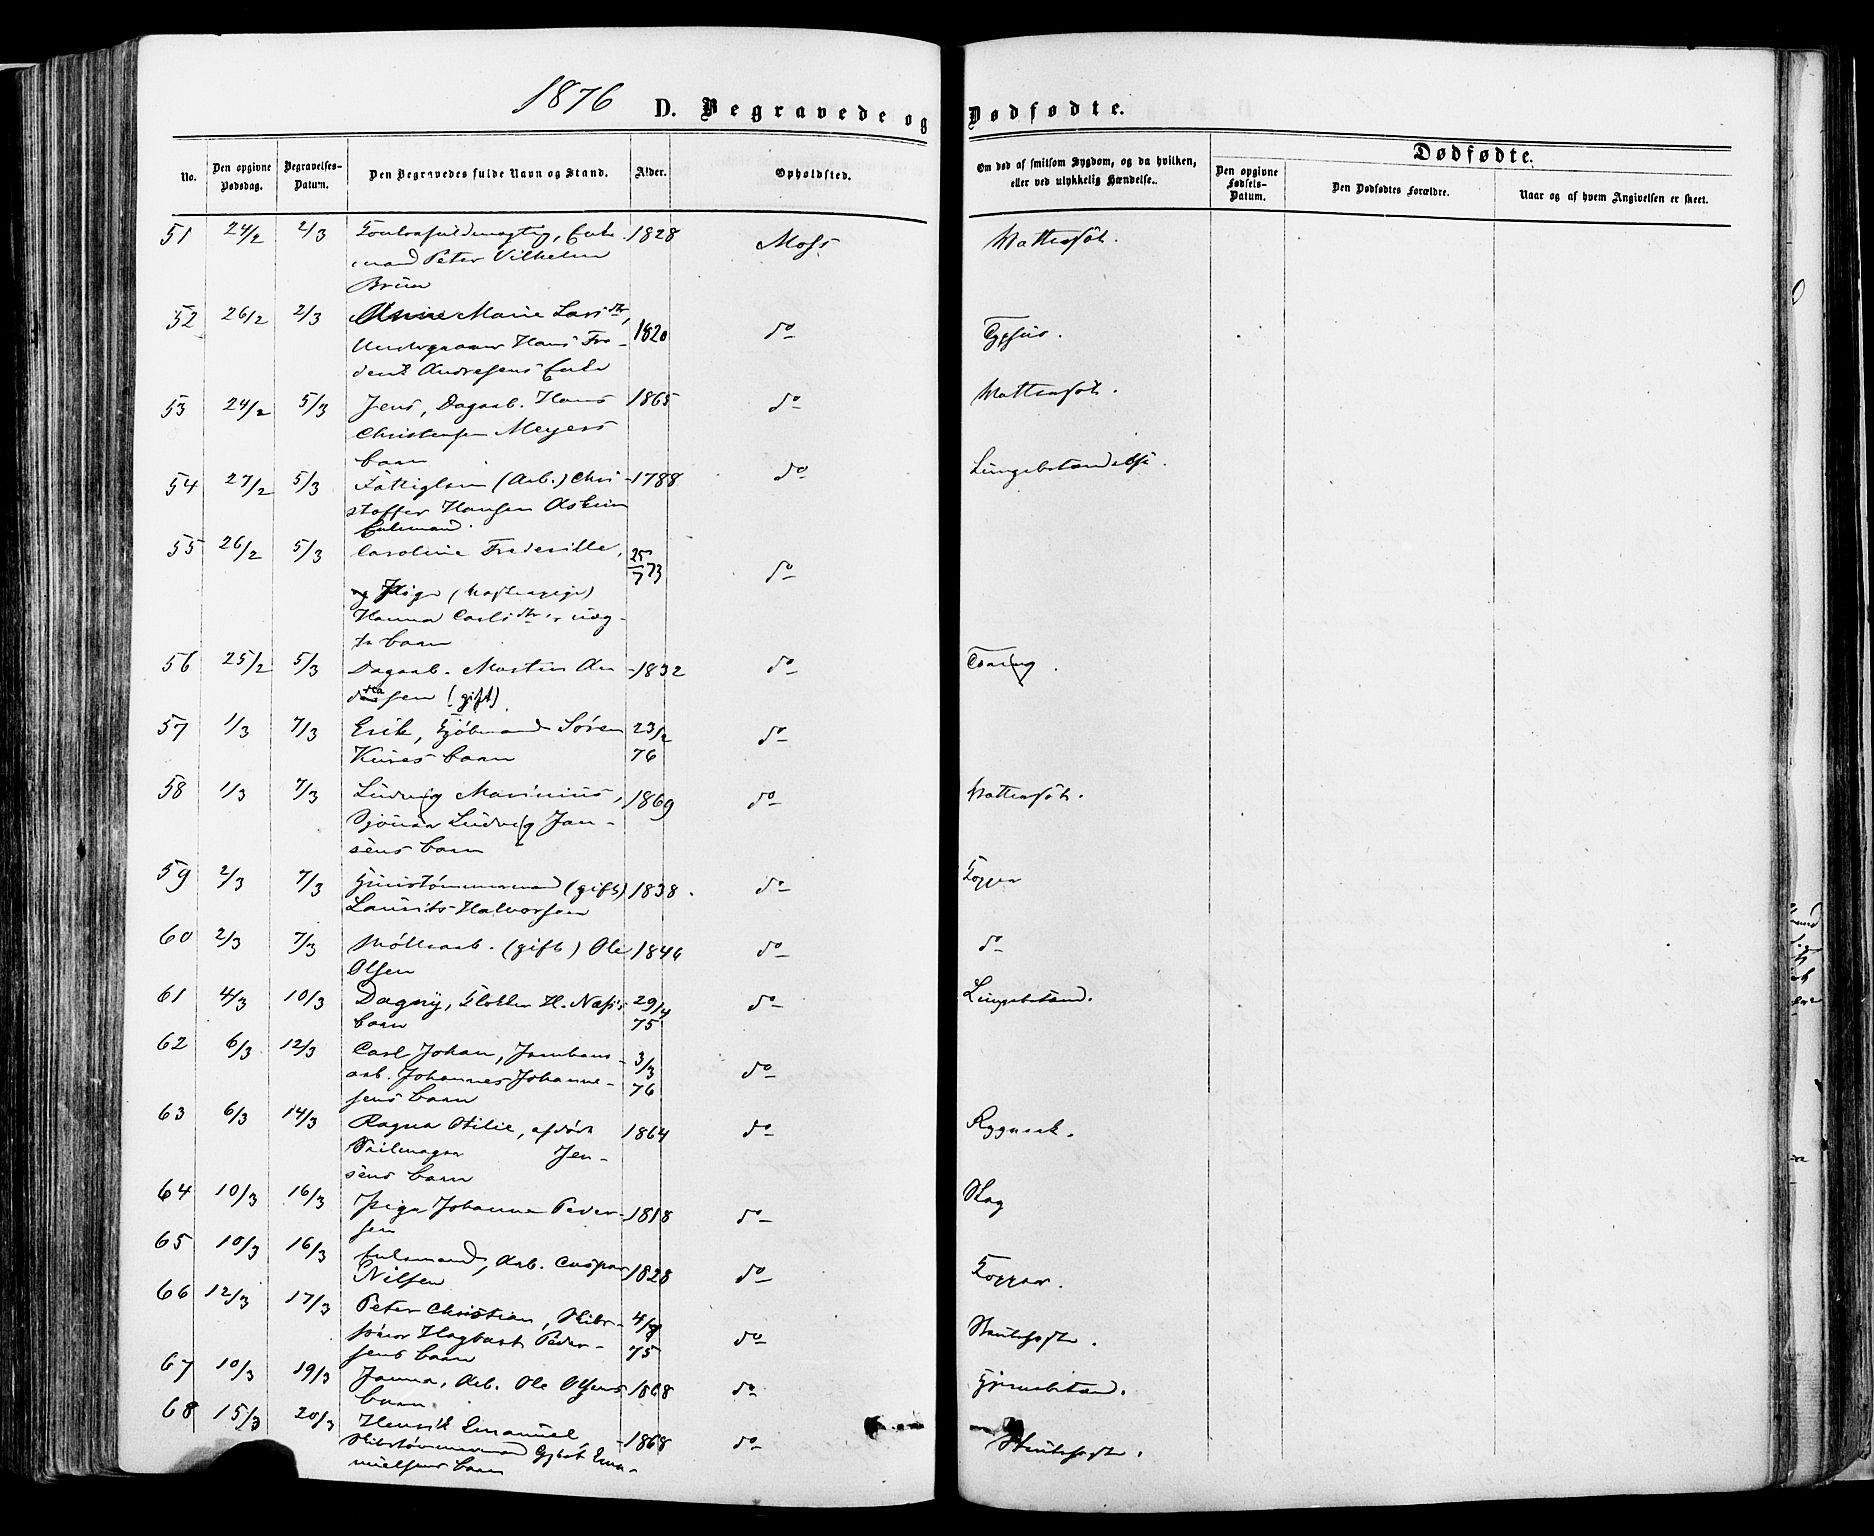 1876
D. Begravede og Dødfødte.
No. Den opgivne Dødsdag. Begravelses-Datum. Den Begravedes fulde Navn og Stand. Alder. Opholdsted. Om død af smitsom Sygdom, og da hvilken, eller ved ulykkelig Hændelse. Dødfødte.
Den opgivne Fødsels-Datum. Den Dødfødtes Forældre. Naar og af hvem Angivelsen er skeet.
51 24/2 2/3 Enke- 1828 Moss Vattersot.
mand Peter Vilhelm
Brun
52 26/2 2/3 Marie Larsdtr, 1820 do Typhus.
Hans Fre-
Andresens Enke
53 24/2 5/3 Jens, Dagarb. Hans 1865 do Vattersot.
Christensen Meyers
barn
54 27/2 5/3 Fattiglem (Arb.) Chri- 1788 do Lungebetændelse.
stoffer Hansen Askim
Enkemand.
55 26/2 5/3 Caroline Frederikke, 25/7 73 do
Pige
Hanna Carlsdtr., uæg-
te barn
56 25/2 5/3 Dagarb. Martin An- 1832 do Tæring.
dreasen (gift).
57 1/3 7/3 Erik, Sjømand Søren 23/2 76 do
barn
58 1/3 7/3 Ludvig Marinius, 1869 do Vattersot.
Ludvig Jan-
sens barn
59 2/3 7/3 (gift) 1838. do Kopper
Laurits Halvorsen
60 2/3 7/3 Møllearb. (gift) Ole 1846 do do
Olsen
61 4/3 10/3 Dagny, H. Næss's 29/4 75 do Lungebetænd.
barn
62 6/3 12/3 Carl Johan, Jernbane- 3/3 76 do
arb. Johannes Johanne-
sens barn
63 6/3 14/3 Ragna Otilie, afdøde 1864 do Rygmarv.
Seilmager Jen-
sens barn
64 10/3 16/3 Pige Johanne Peder- 1818 do Slag
sen
65 10/3 16/3 Enkemand, Arb. Caspar 1828 do Kopper.
Nilsen
66 12/3 17/3 Peter Christian, Skibs- 75 do Strubehoste.
fører Hagbart Peder-
sens barn
67 10/3 19/3 Janna, Arb. Ole Olsens 1868 do Hjernebetænd.
barn
68 15/3 20/3 Henrik Emanuel 1868 do Strubehoste.
Skibstømmermand Ema-
nuelsens barn